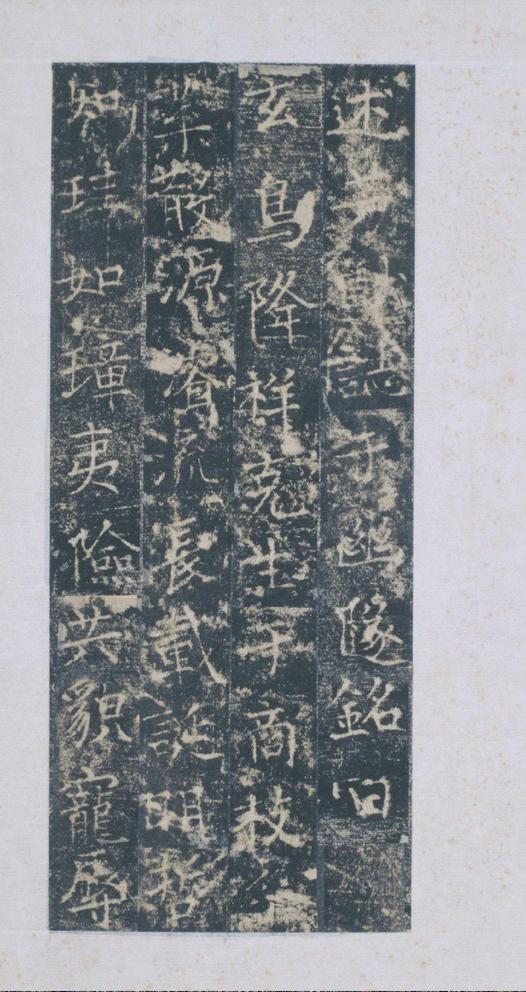 述誌于幽隧銘曰
玄鳥降祥克生于商枝分
葉散源濬流長載誕明哲
珪如璋夷險共貌寵辱